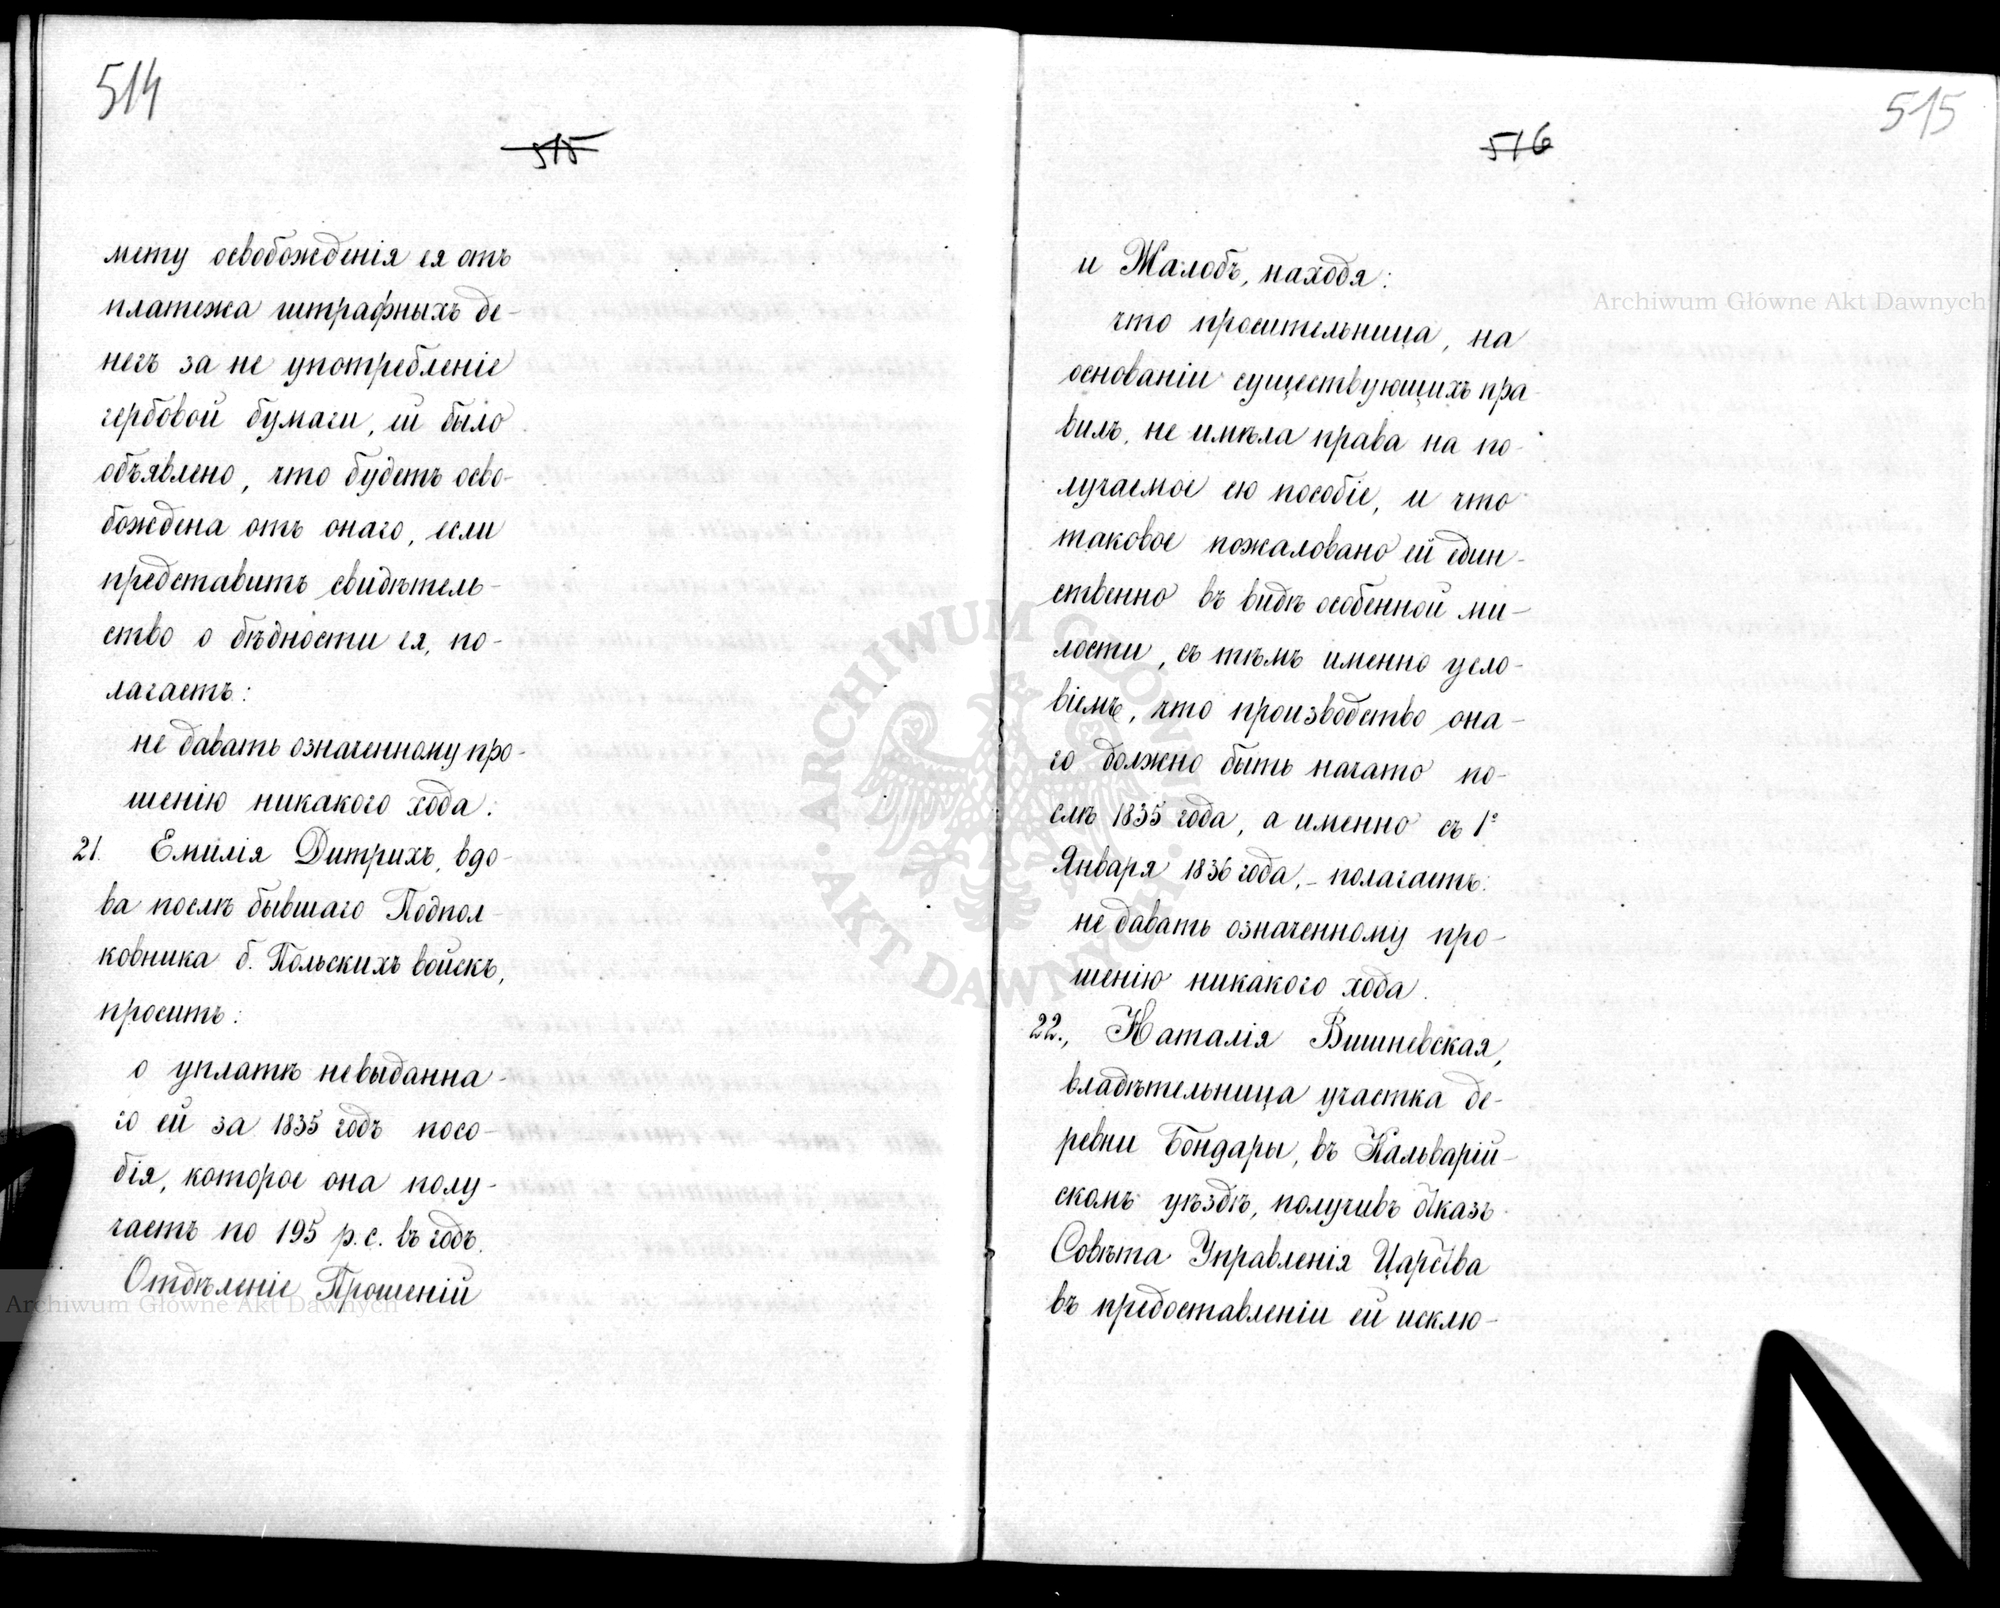 514
515
мету освобожденія ея отъ
платежа штрафныхъ де-
негъ за не употребленіе
гербовой бумаги, ей было
объявлено, что будетъ осво-
бождена отъ онаго, если
представитъ свидѣтель-
ство о бѣдности ея, по-
лагаетъ:
не давать означенному про-
шенію никакого хода.
21. Емилія Дитрихъ, вдо-
ва послѣ бывшаго Подпол-
ковника б. Польскихъ войскъ,
проситъ:
о уплатѣ невыданна-
го ей за 1835 годъ посо-
бія, которое она полу-
чаетъ по 195 р. с. въ годъ.
Отдѣленіе Прошеній
Archiwum Główne Akt Dawnych
515
516
и Жалобъ, находя:
Archiwum Główne Akt Dawnych
что просительница, на
основаніи существующихъ пра-
вилъ, не имѣла права на по-
лучаемое ею пособіе, и что
таковое пожаловано ей един-
ственно въ видѣ особенной ми-
лости, съ тѣмъ именно усло-
віемъ, что производство она-
го должно быть начато по-
слѣ 1835 года, а именно съ 1º
Января 1836 года, - полагаетъ:
не давать означенному про-
шенію никакого хода.
22., Наталія Вишневская,
владѣтельница участка де-
ревни Бондары, въ Кальварій-
скомъ уѣздѣ, получивъ отказъ
Совѣта Управленія Царства
въ предоставленіи ей исклю-
ARCHIWUM GŁÓWNE AKT DAWNYCH